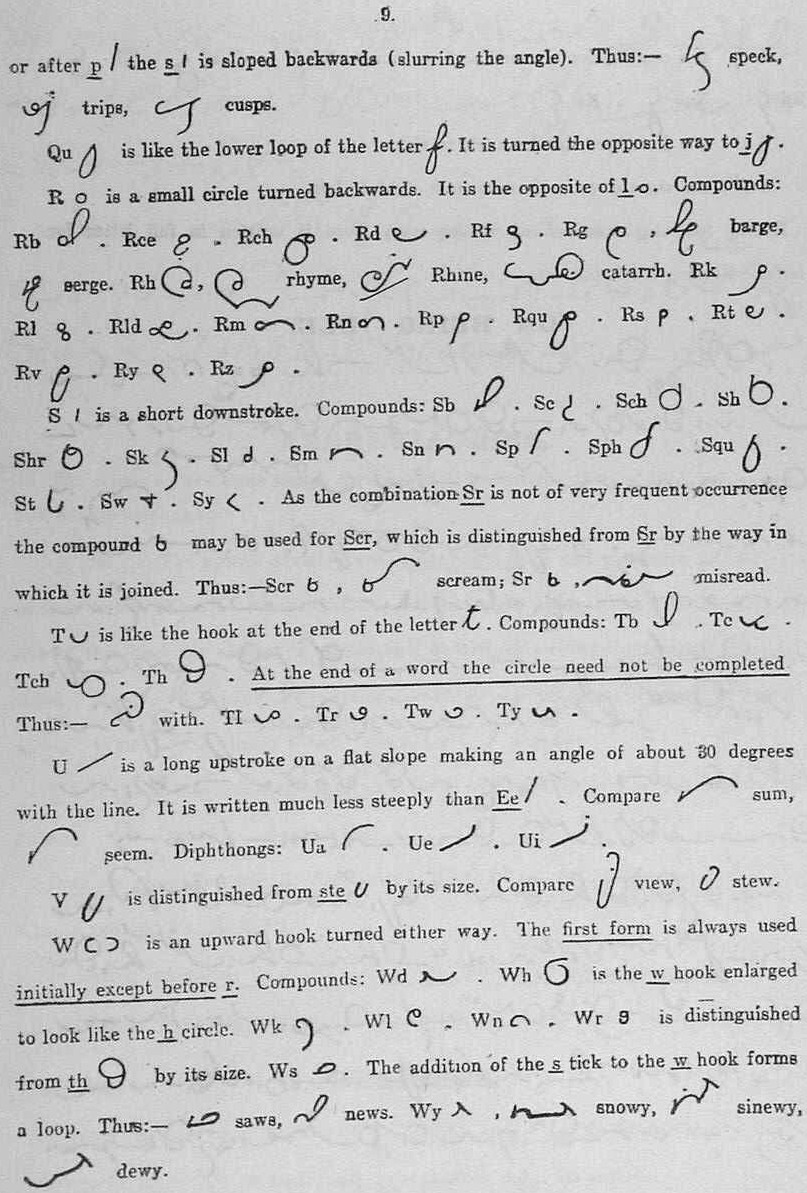 9.
or after p the s is sloped backwards (slurring the angle). Thus:— speck,
trips, cusps.
Qu is like the lower loop of the letter f. It is turned the opposite way to j.
R is a small circle turned backwards. It is the opposite of l. Compounds:
Rb . Rce . Rch . Rd . Rf . Rg , barge,
serge. Rh , rhyme, Rhine, catarrh. Rk .
Rl . Rld . Rm . Rn . Rp . Rqu . Rs . Rt .
Rv . Ry . Rz .
S is a short downstroke. Compounds: Sb . Sc . Sch . Sh .
Shr . Sk . Sl . Sm . Sn . Sp . Sph . Squ .
St . Sw . Sy . As the combination Sr is not of very frequent occurrence
the compound may be used for Scr, which is distinguished from Sr by the way in
which it is joined. Thus:—Scr , scream; Sr , misread.
T is like the hook at the end of the letter t. Compounds: Tb . Tc .
Tch . Th . At the end of a word the circle need not be completed
Thus:— with. Tl . Tr . Tw . Ty .
U is a long upstroke on a flat slope making an angle of about 30 degrees
with the line. It is written much less steeply than Ee . Compare sum,
seem. Diphthongs: Ua . Ue . Ui .
V is distinguished from ste by its size. Compare view, stew.
W is an upward hook turned either way. The first form is always used
initially except before r. Compounds: Wd . Wh is the w hook enlarged
to look like the h circle. Wk . Wl . Wn . Wr is distinguished
from th by its size. Ws . The addition of the s tick to the w hook forms
a loop. Thus:— saws, news. Wy , snowy, sinewy,
dewy.